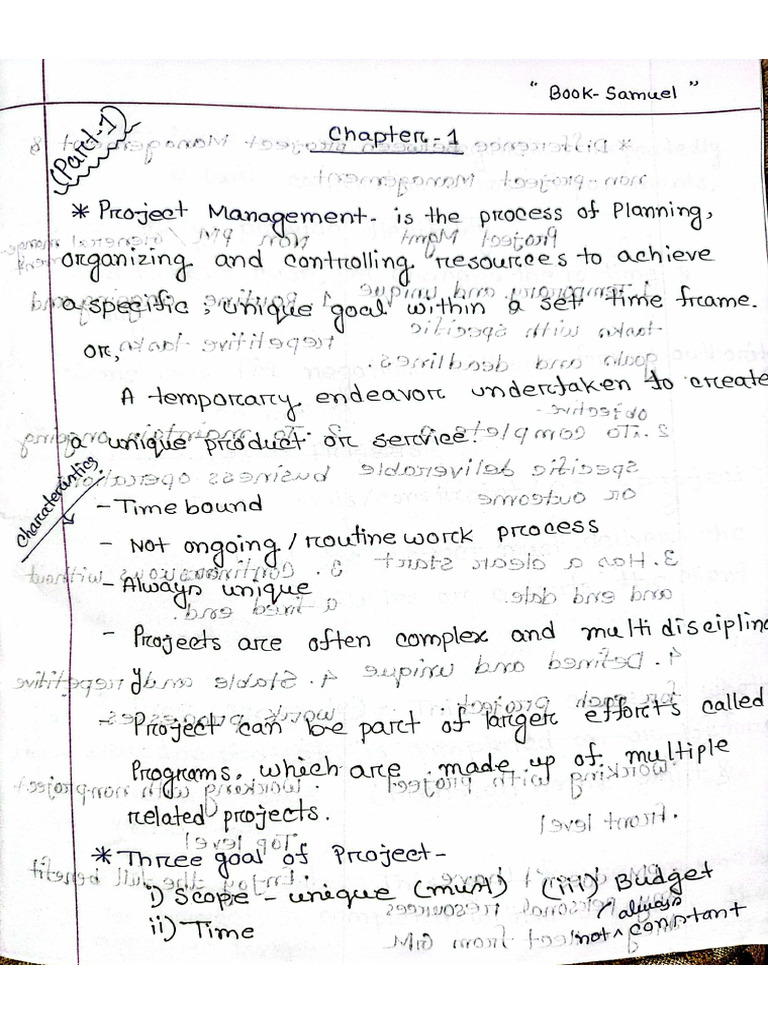 " Book- Samuel "
(Part-1)
Chapter-1
* Project Management- is the process of Planning,
organizing and controlling resources to achieve
a specific, unique goal within a set time frame.
or,
A temporary endeavor undertaken to create
a unique product or service.
Characteristics.
- Time bound
- Not ongoing/routine work process
- Always unique
- Projects are often complex and multidisciplina
y
- Project can be part of larger efforts called
Programs, which are made up of multiple
related projects.
* Three goal of Project-
i) Scope - unique (must) (iii) Budget
ii) Time not always constant